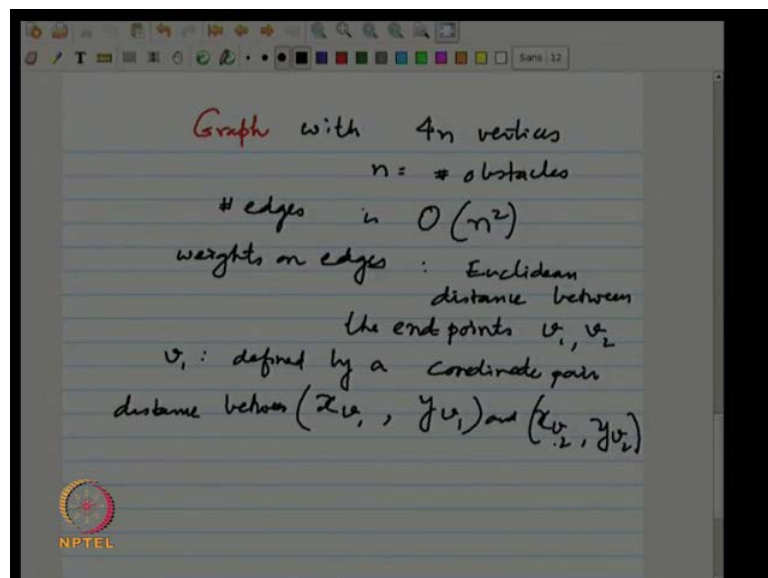 T Sans 12
Graph with 4n vertices
n = # obstacles
# edges is O(n²)
weights on edges : Euclidean
distance between
the end points v₁, v₂
v₁ : defined by a coordinate pair
distance between (x_{v₁}, y_{v₁}) and (x_{v₂}, y_{v₂})
NPTEL